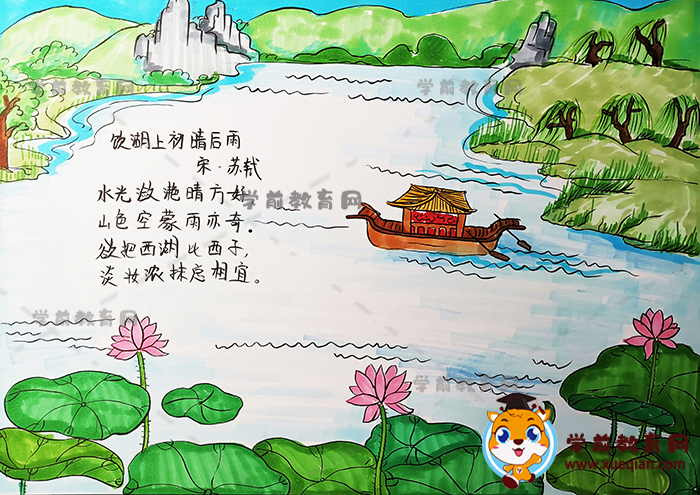 饮湖上初晴后雨
宋·苏轼
水光潋滟晴方好
山色空蒙雨亦奇。
欲把西湖比西子,
淡妆浓抹总相宜。
学前教育网
学前教育网
学前教育网
学前教育网
学前教育网
学前教育网
学前教育网
学前教育网
www.xueqian.com